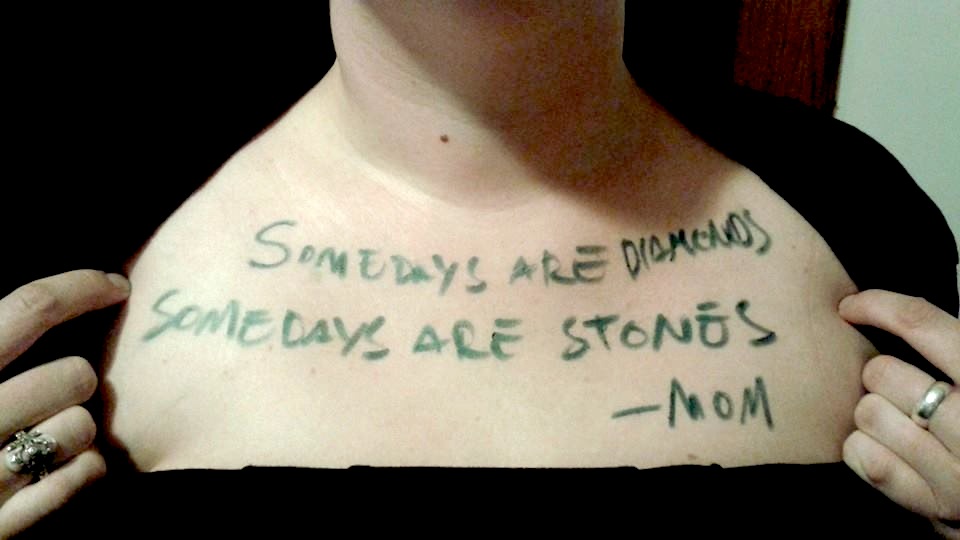 SOMEDAYS ARE DIAMONDS
SOMEDAYS ARE STONES
—MOM